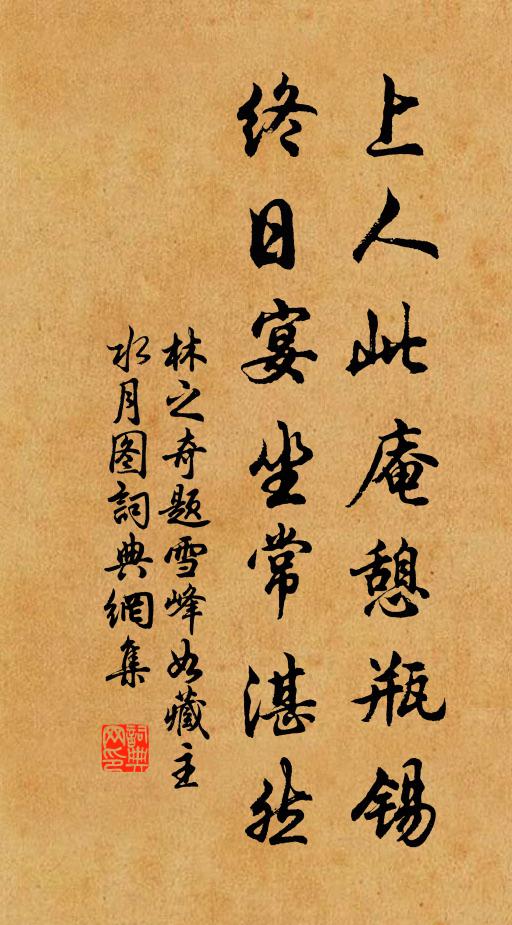 上人此庵憩瓶锡
终日宴坐常湛然
林之奇题雪峰如藏主
水月图詞典網集
詞典
网印